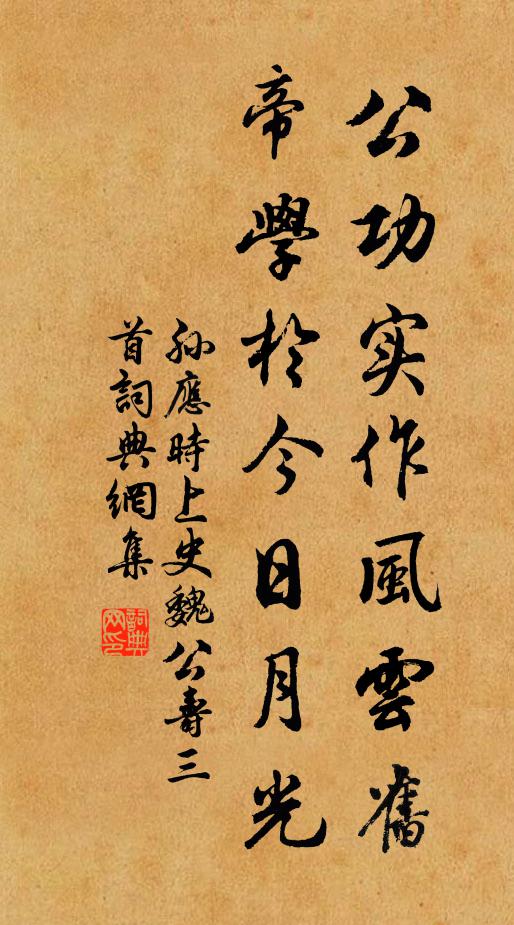 公功实作風雲舊
帝學於今日月光
孙應時上史魏公壽三
首詞典網集
詞典
网印